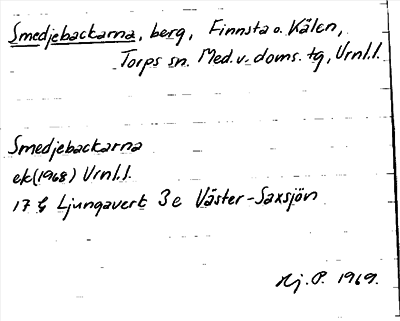 Smedjebackarna, berg, Finnsta o. Kälen,
Torps sn. Med. v. doms. tg, Vrnl.l.
Smedjebackarna
ek(1968) Vrnl.l.
17 G Ljungaverk 3e Väster-Saxsjön
Hj. P. 1969.